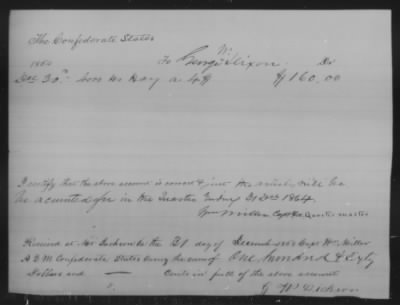 The Confederate States
1864 To George W. Dixon Dr
Dec 30th 4000 lbs Hay a 4$ $160.00
I certify that the above account is correct & just the
be accounted for in the Quarter Ending 31 Dec 1864
Wm Miller Capt & Quarter master
Received at the 31 day of December 1864 Capt Wm Miller
A.Q.M. Confederate States Army the sum of One Hundred & Sixty
Dollars and — Cents in full of the above account
G W Dickson